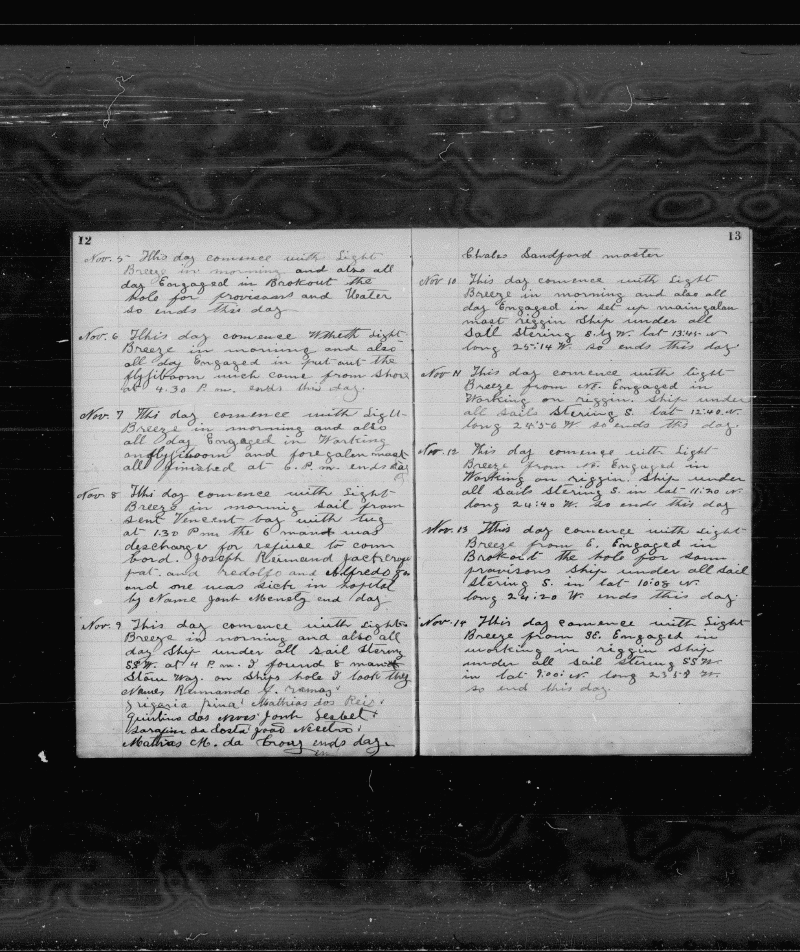 12
Nov. 5 This day comence with Light
Breeze in morning and also all
day Engaged in Brokout the
holo for provisons and Water
so ends this day
Nov. 6 This day comence Wtheth Light
Breeze in morning and also
all day Engaged in put out the
flyjiboom wich came from Shore
at 4.30 P.m. ends this day.
Nov. 7 This day comence with Light
Breeze in morning and also
all day Engaged in Working
on flyjiboom and foregalen mast
all finished at 6. P.m. ends day
Nov. 8 This day comence with Light
Breeze in morning sail from
sent Vencent bay with tug
at 1.30 P.m. the 6 man
discharge for refuise to com
bord. Joseph Reimand Jack
pat. and Redolfo and Alfredo
and one was sick in hospital
by Name Jonh Menety end day
Nov. 9 This day comence with Light
Breeze in morning and also all
day Ship under all Sail Stering
SSW. at 4 P.m. I found 8 man
Stow Way. on Ships holo I took they
Names Reimando J. ramos
grigeria pina Mathias dos Reis
Quintino das Neves Jonh Lesbet
Sarafin da Costa joao
Mathias M. da Crouz ends day
13
Chales Sandford master
Nov. 10 This day comence with Light
Breeze in morning and also all
day Engaged in set up maingalan
mast riggin Ship under all
Sail Stering S.by W. lat 13:45 N
long 25:14 W. so ends this day
Nov. 11 This day comence with light
Breeze from NE. Engaged in
Working on riggin. Ship under
all Sails Stering S. lat 12:40. N.
long 24:56 W so ends this day.
Nov. 12 This day comence with Light
Breeze from NE. Engaged in
Working on riggin. Ship under
all Sails Stering S. in lat 11:20 N.
long 24:40 W. so ends this day
Nov. 13 This day comence with Light
Breeze from E. Engaged in
Brokout the holo for som
provisons Ship under all Sail
Stering S. in lat 10:08 N.
long 24:20 W. ends this day.
Nov. 14 This day comence with Light
Breeze from SE. Engaged in
working in riggin Ship
under all Sail Stering SSW.
in lat 9:00 N. long 23:58 W.
so end this day.